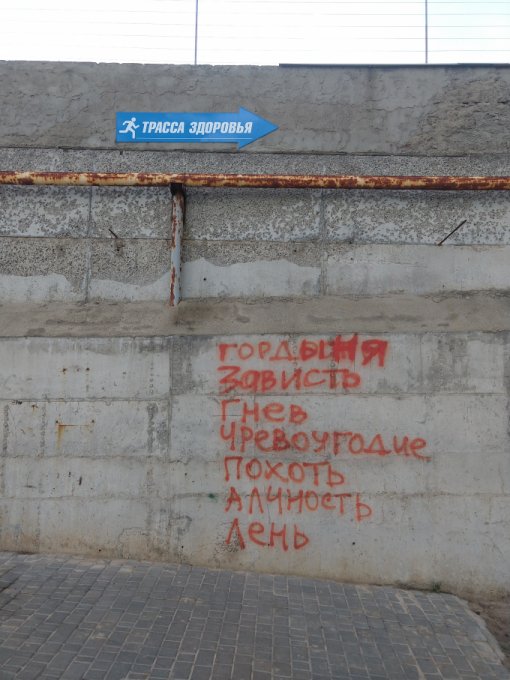 ТРАССА ЗДОРОВЬЯ
ГОРДЫНЯ
Зависть
Гнев
Чревоугодие
Похоть
Алчность
Лень